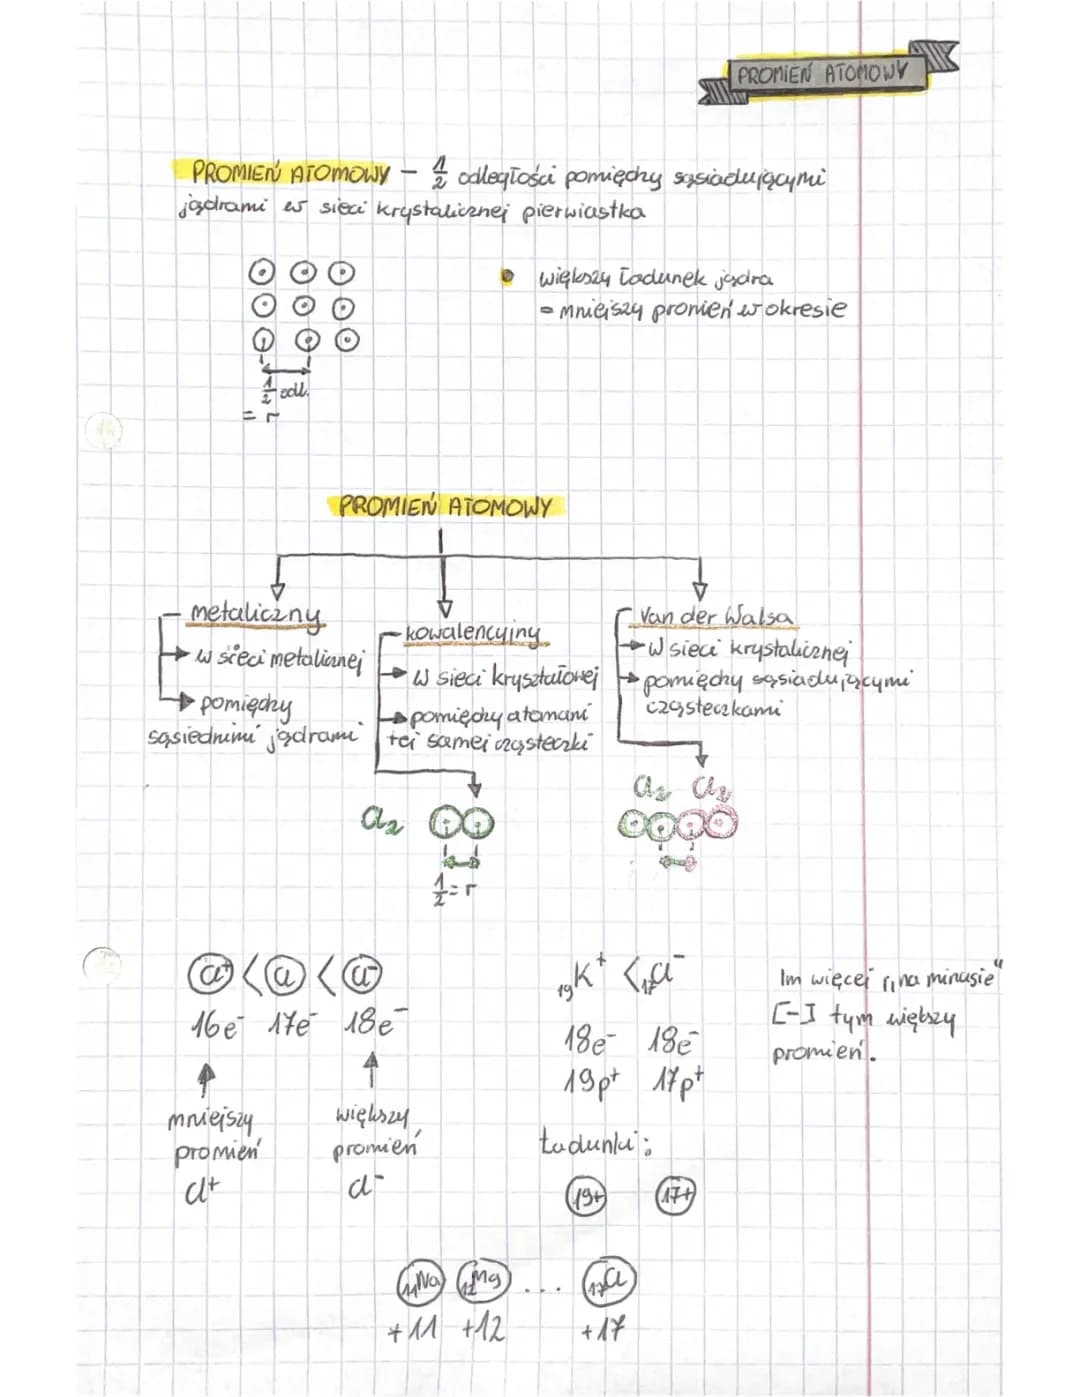 PROMIEŃ ATOMOWY
PROMIEŃ ATOMOWY - 1/2 odległości pomiędzy sąsiadującymi
jądrami w sieci krystalicznej pierwiastka
większy ładunek jądra
= mniejszy promień w okresie
1/2 odl.
= r
PROMIEŃ ATOMOWY
metaliczny
w sieci metalicznej
pomiędzy
sąsiednimi jądrami
kowalencyjny
w sieci kryształowej
pomiędzy atomami
tej samej cząsteczki
Cl2
1/2 = r
Van der Walsa
W sieci krystalicznej
pomiędzy sąsiadującymi
cząsteczkami
Cl2 Cl2
Cl+ < Cl < Cl-
16e- 17e- 18e-
mniejszy
promień
Cl+
większy
promień
Cl-
19K+ < 17Cl-
18e- 18e-
19p+ 17p+
Ładunki:
19+ 17+
Im więcej „na minusie"
[-] tym większy
promień.
11Na 12Mg ... 17Cl
+11 +12 +17